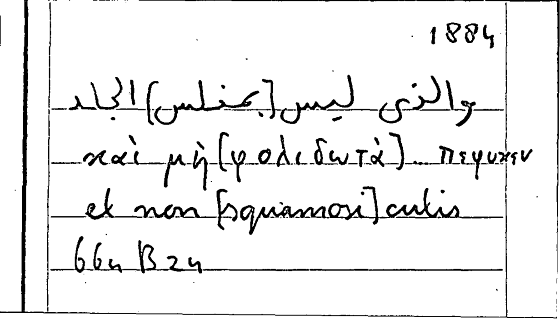 1884
والذى ليس [بمفلس] الجلد
καὶ μὴ [φολιδωτὰ]... πεφυκεν
et non [squamosi] cutis
664 B 24